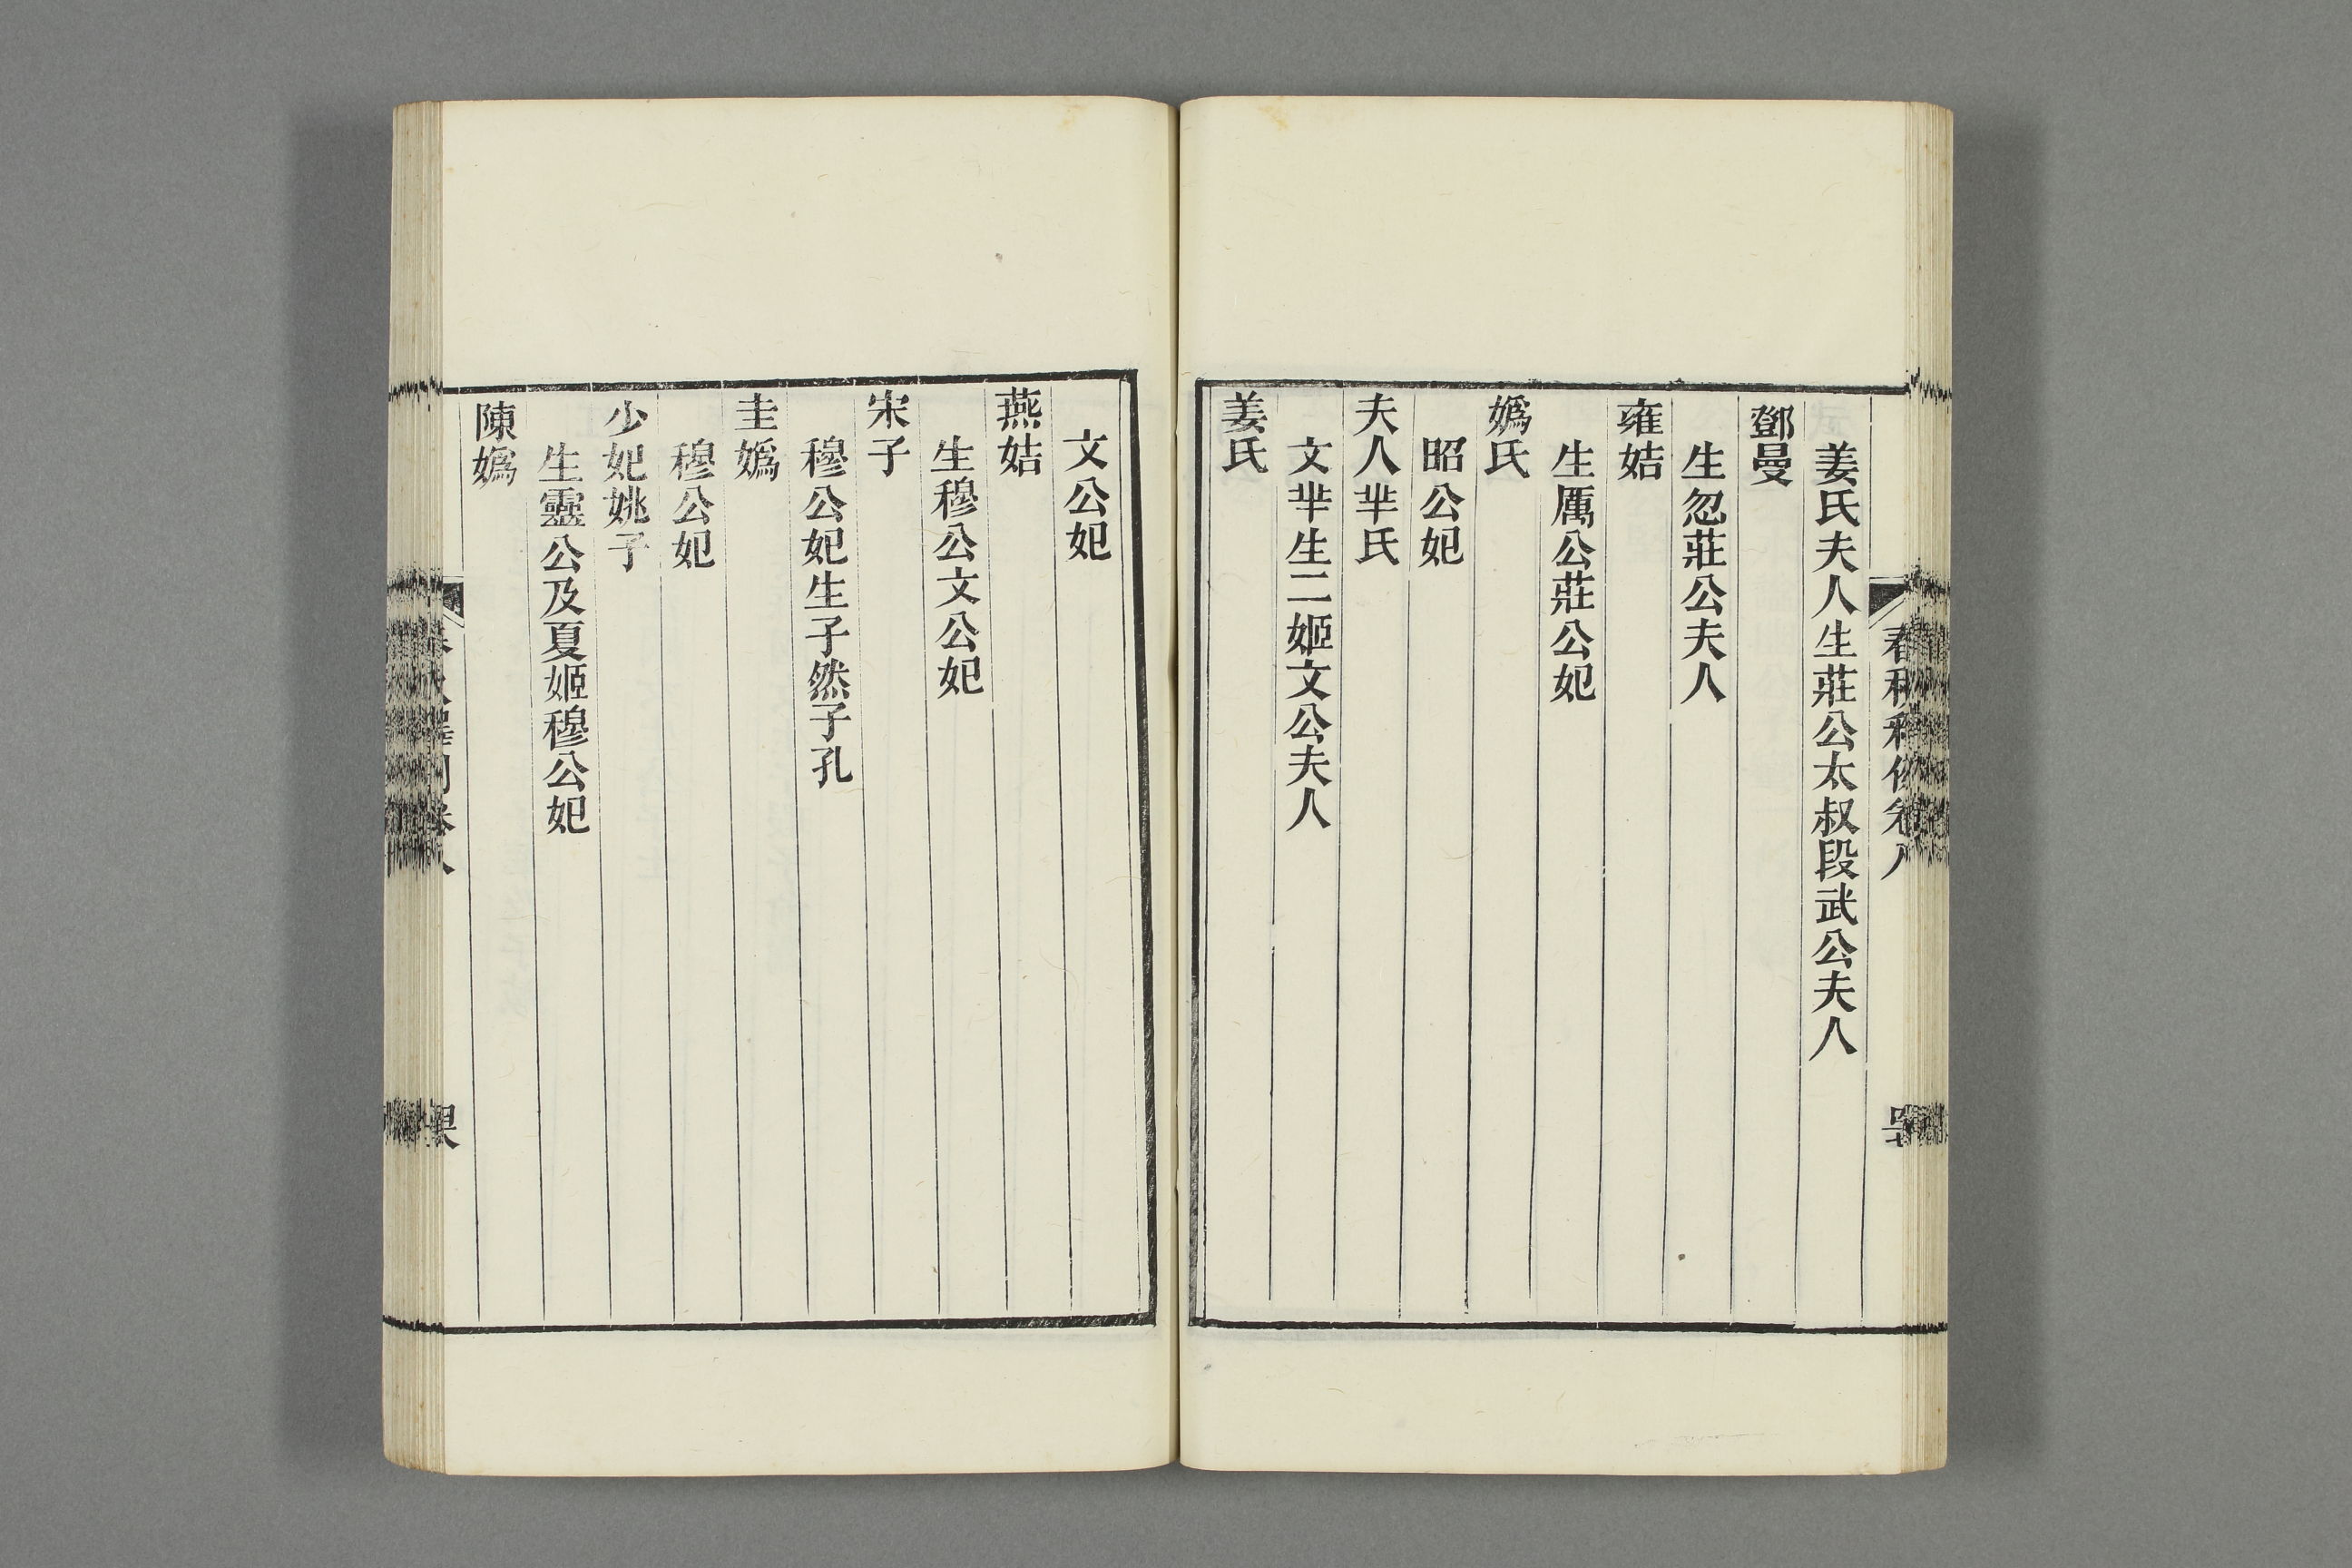 姜氏夫人生莊公太叔段武公夫人
鄧曼
生忽莊公夫人
雍姞
生厲公莊公妃
嬀氏
昭公妃
夫人羋氏
文羋生二姬文公夫人
姜氏
文公妃
燕姞
生穆公文公妃
宋子
穆公妃生子然子孔
圭嬀
穆公妃
少妃姚子
生靈公及夏姬穆公妃
陳嬀